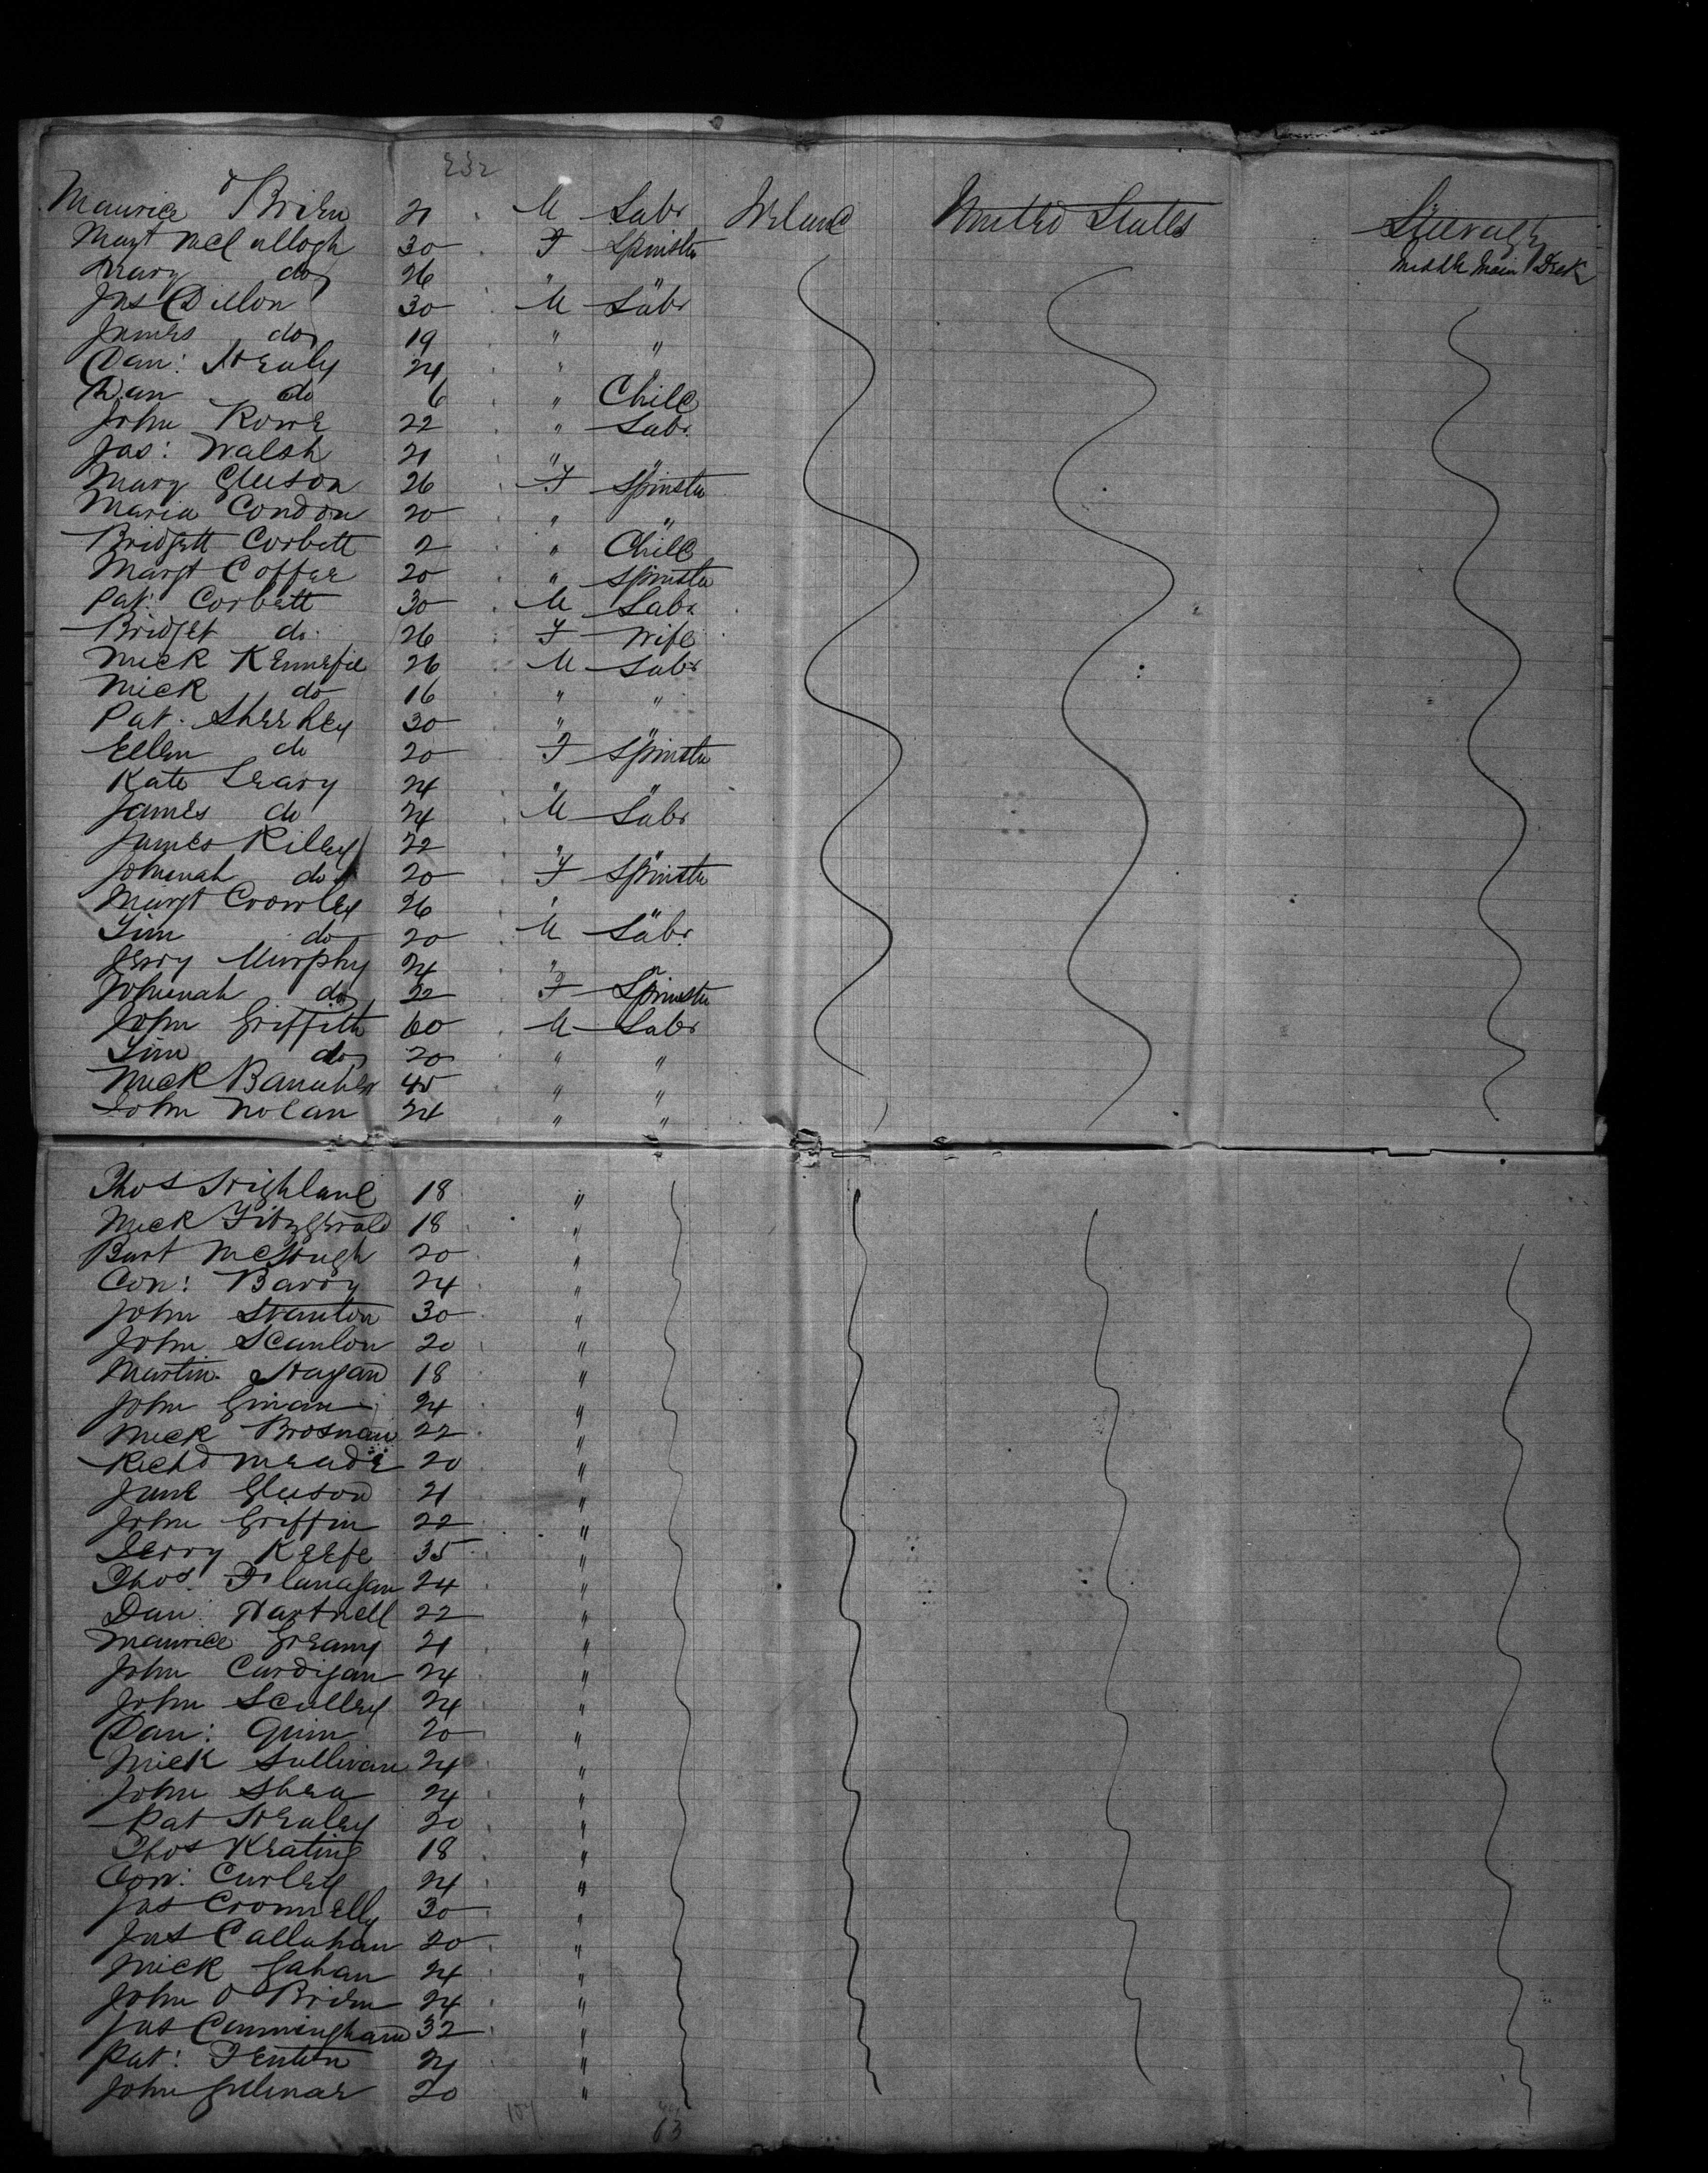 232
Maurice O'Brien 21 M Labr Ireland United States Steerage
Margt McCullogh 30 F Spinster
Mary do 26 " " Middle Main Deck
Jas Dillon 30 M Labr
James do 19 " "
Dan: Healy 24 " "
Dan do 6 " Child
John Rowe 22 " Labr
Jas: Walsh 21 " "
Mary Gleeson 26 F Spinster
Maria Condon 20 " "
Bridgett Corbett 2 " Child
Margt Coffee 20 " Spinster
Pat: Corbett 30 M Labr
Bridget do 26 F Wife
Mick Kennefie 26 M Labr
Mick do 16 " "
Pat. Sheehey 30 " "
Ellen do 20 F Spinster
Kate Leary 24 " "
James do 24 M Labr
James Riley 22 " "
Johanah do 20 F Spinster
Margt Crowley 26 " "
Tim do 20 M Labr
Jerry Murphy 24 " "
Johanah do 22 F Spinster
John Griffith 60 M Labr
Tim do 20 " "
Mick Banaher 45 " "
John Nolan 24 " "
Thos Highland 18 "
Mick Fitzgerald 18 "
Bart McHugh 20 "
Con: Barry 24 "
John Stanton 30 "
John Scanlon 20 "
Martin Hagan 18 "
John 24 "
Mick Brosnan 22 "
Richd Meade 20 "
Jane Gleeson 21 "
John Griffin 22 "
Jerry Keefe 35 "
Thos. Flanagan 24 "
Dan: Hartnell 22 "
Maurice Greany 21 "
John Cardigan 24 "
John Sculley 24 "
Dan: Quin 20 "
Mick Sullivan 24 "
John Shea 24 "
Pat Healey 20 "
Thos Keating 18 "
Con: Curley 24 "
Jas Cronnelly 30 "
Jas Callahan 20 "
Mick Gahan 24 "
John O'Brien 24 "
Jas Cunningham 32 "
Pat: Fenton 21 "
John 20 "
63